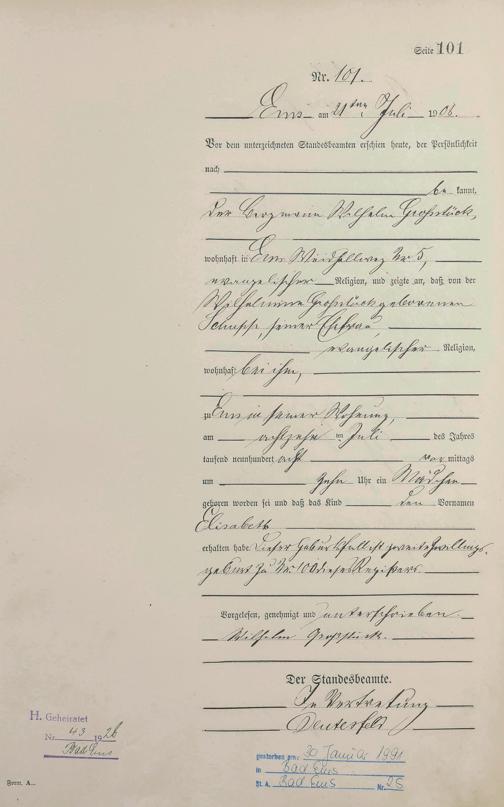 Seite 101
Nr. 101.
Ems am 21ten Juli 1908.
Vor dem unterzeichneten Standesbeamten erschien heute, der Persönlichkeit
nach
be kannt,
der Bergmann Wilhelm Großstück,
wohnhaft in Ems Nr. 5,
evangelischer Religion, und zeigte an, daß von der
Wilhelmine Großstück geborenen
seiner Ehefrau,
evangelischer Religion,
wohnhaft bei ihm,
zu Ems in seiner Wohnung,
am achtzehn ten Juli des Jahres
tausend neunhundert acht vor mittags
um zehn Uhr ein Mädchen
geboren worden sei und daß das Kind den Vornamen
Elisabeth
erhalten habe. Dieser Geburtsfall ist zweite Zwillings-
geburt zu Nr. 100 dieses Registers
Vorgelesen, genehmigt und unterschrieben
Wilhelm Großstück.
Der Standesbeamte.
In Vertretung
H. Geheiratet
Nr. 43 1926
Bad Ems
gestorben am: 30 Januar 1991
in Bad Ems
St. A. Bad Ems Nr. 25
Form. A